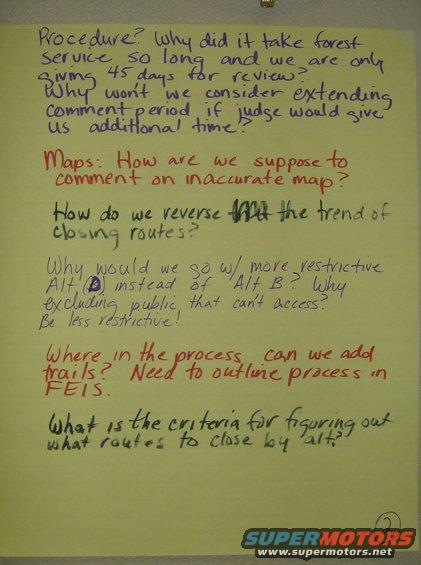 Procedure? Why did it take forest
service so long and we are only
giving 45 days for review?
Why won't we consider extending
comment period if judge would give
us additional time?
Maps: How are we suppose to
comment on inaccurate map?
How do we reverse the trend of
closing routes?
Why would we go w/ more restrictive
Alt D instead of Alt B? Why
excluding public that can't access?
Be less restrictive!
Where in the process can we add
trails? Need to outline process in
FEIS.
What is the criteria for figuring out
what routes to close by alt?
2
SUPERMOTORS
www.supermotors.net